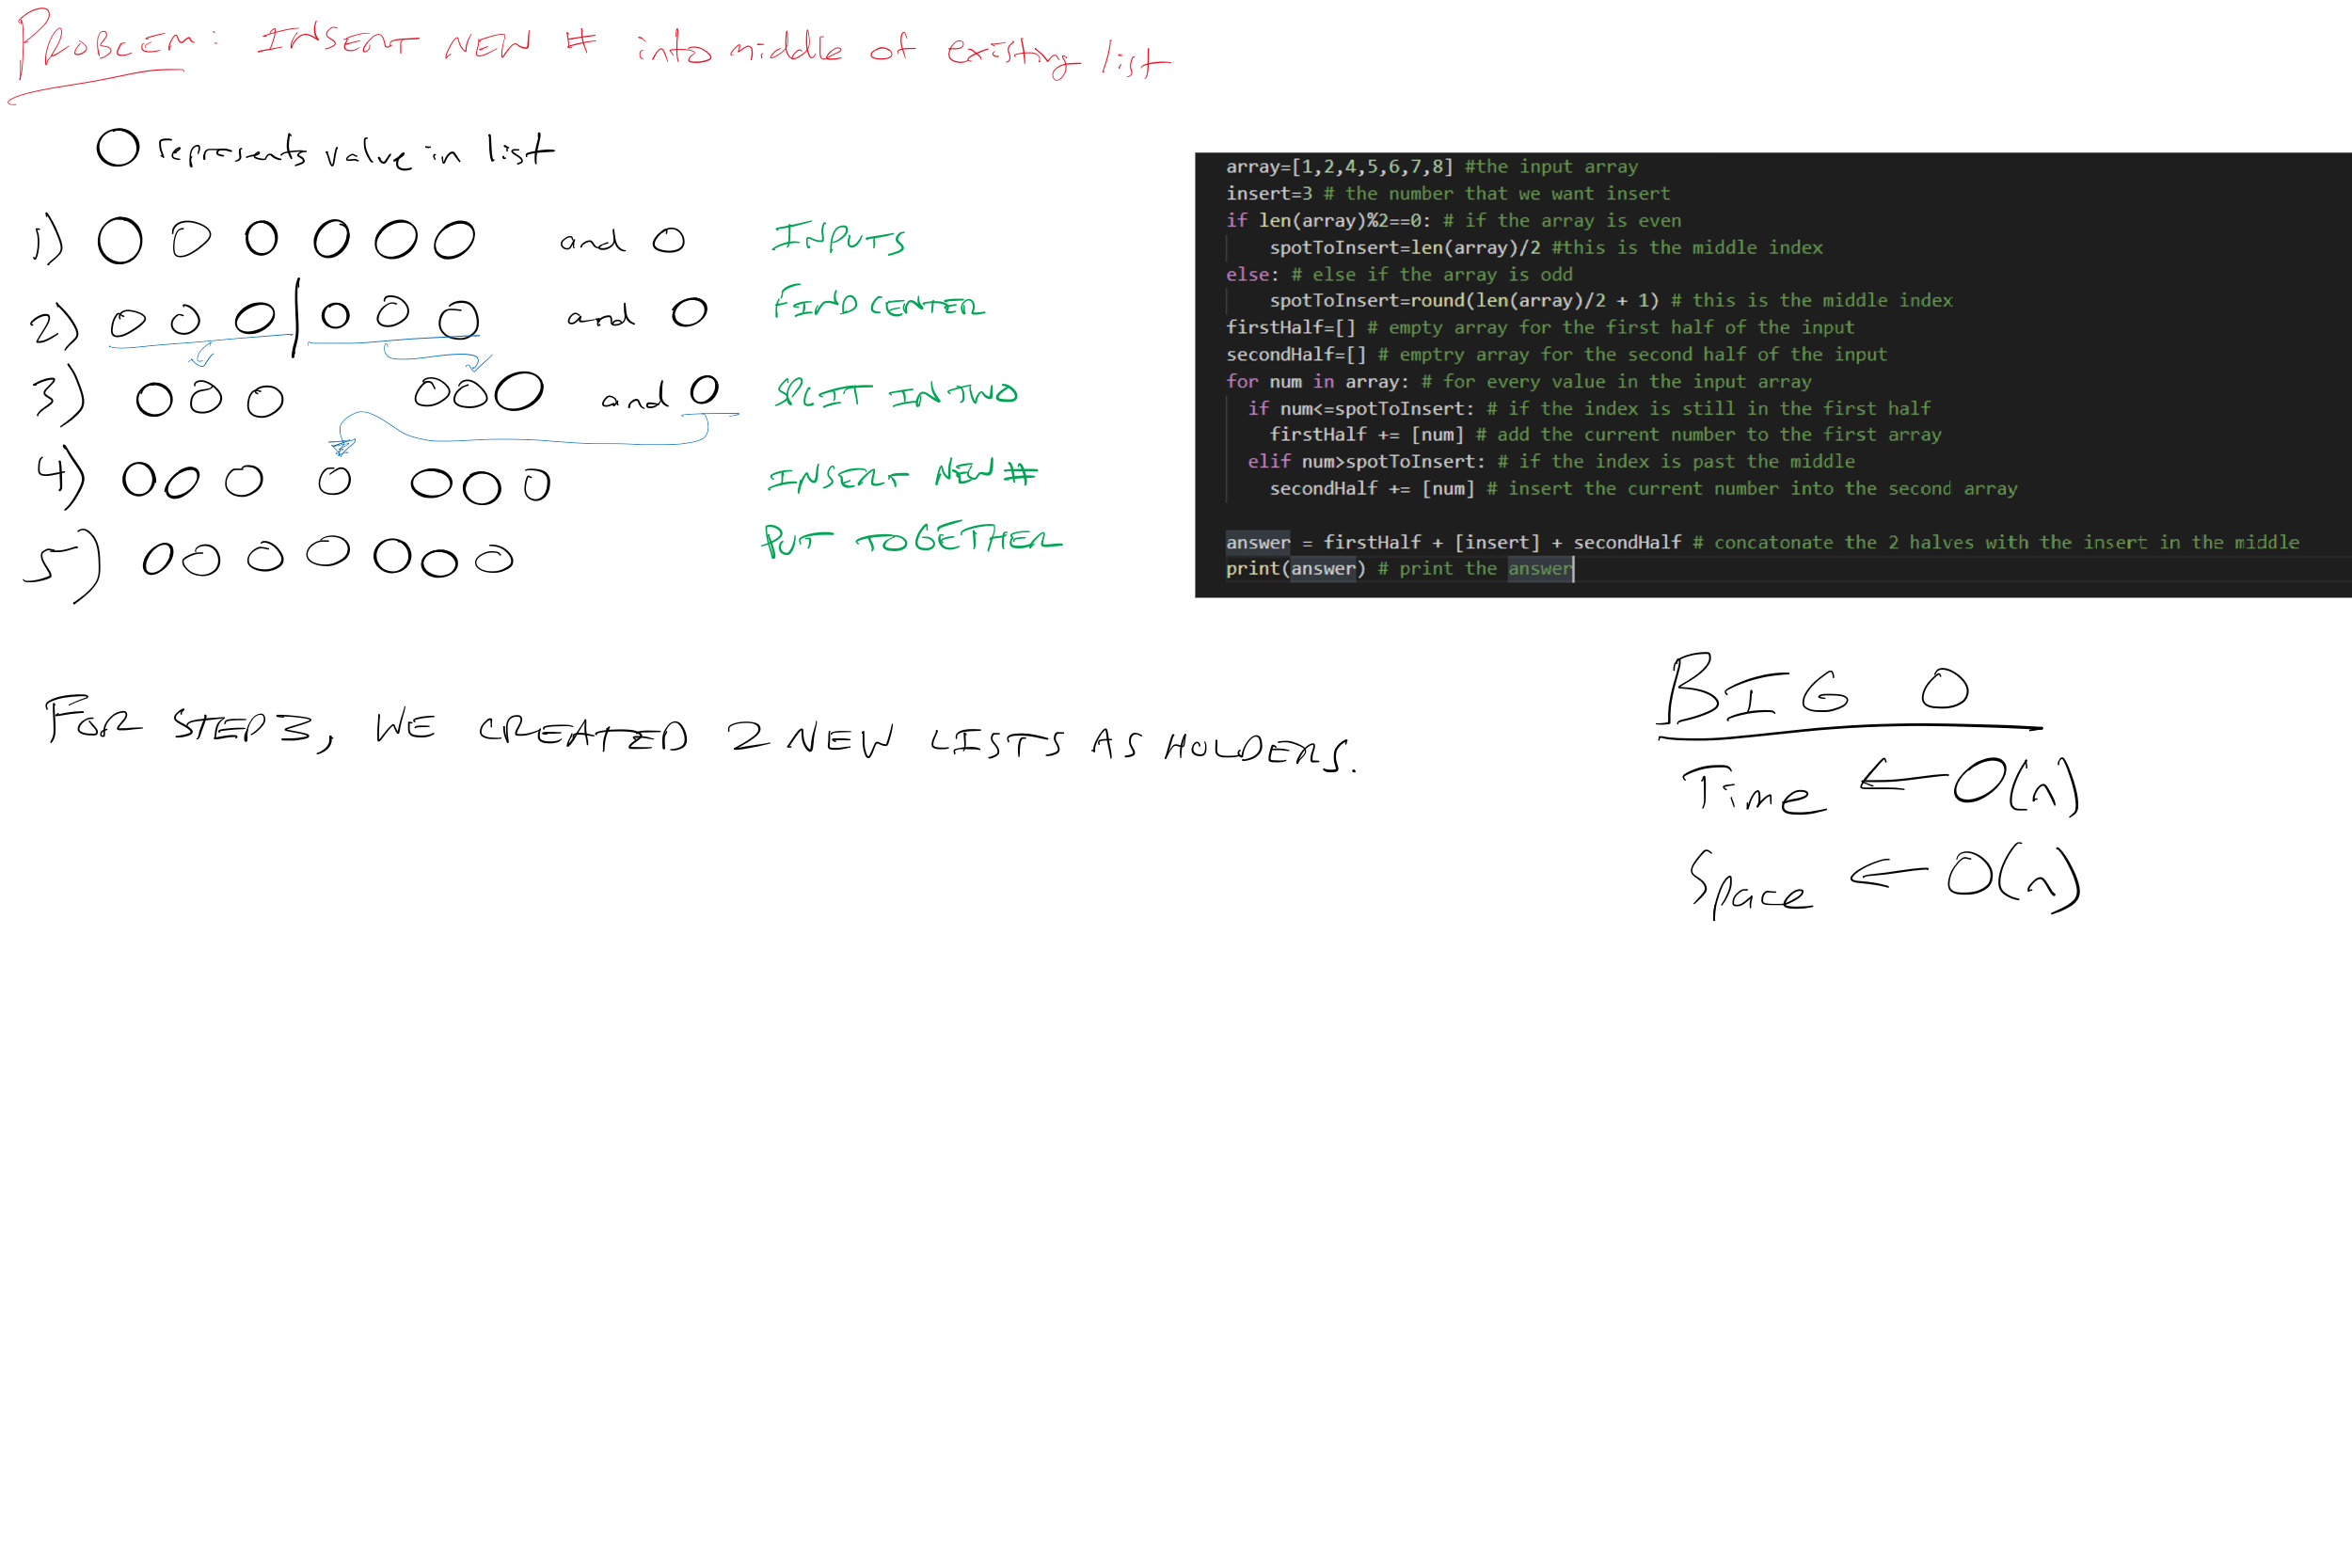 PROBLEM: INSERT NEW # into middle of existing list
represents value in list
1) O O O O O O and O INPUTS
2) O O O | O O O and O FIND CENTER
3) O O O O O O and O SPLIT IN TWO
4) O O O O O O O INSERT NEW #
5) O O O O O O O PUT TOGETHER
array=[1,2,4,5,6,7,8] #the input array
insert=3 # the number that we want insert
if len(array)%2==0: # if the array is even
    spotToInsert=len(array)/2 #this is the middle index
else: # else if the array is odd
    spotToInsert=round(len(array)/2 + 1) # this is the middle index
firstHalf=[] # empty array for the first half of the input
secondHalf=[] # emptry array for the second half of the input
for num in array: # for every value in the input array
  if num<=spotToInsert: # if the index is still in the first half
    firstHalf += [num] # add the current number to the first array
  elif num>spotToInsert: # if the index is past the middle
    secondHalf += [num] # insert the current number into the second array
answer = firstHalf + [insert] + secondHalf # concatonate the 2 halves with the insert in the middle
print(answer) # print the answer
FOR STEP 3, WE CREATED 2 NEW LISTS AS HOLDERS.
BIG O
Time ← O(n)
Space ← O(n)